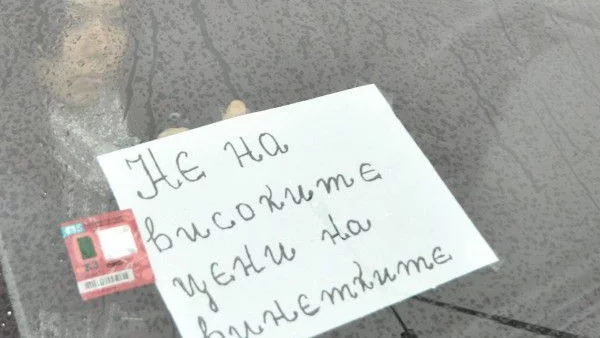 Не на
високите
цени на
винетките